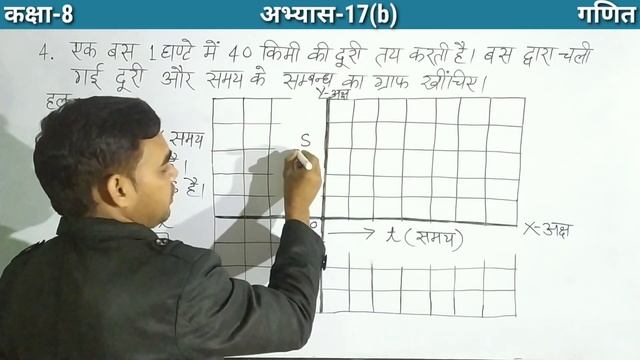 कक्षा-8 अभ्यास-17(b) गणित
4. एक बस 1 घण्टे में 40 किमी की दूरी तय करती है। बस द्वारा चली
गई दूरी और समय के सम्बन्ध का ग्राफ खींचिए।
हल
Y-अक्ष
समय
S
है।
0
t (समय)
X-अक्ष